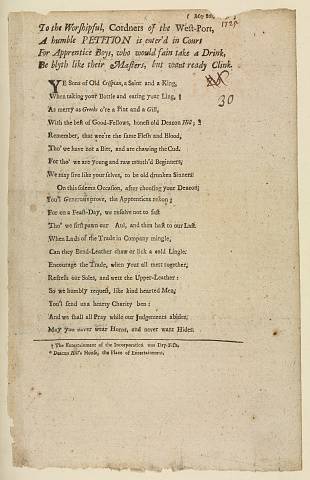 ( May 8th,
1725.
To the Worshipful, Cordners of the West-Port,
A humble PETITION is enter'd in Court
For Apprentice Boys, who would fain take a Drink,
Be blyth like their Masters, but want ready Clink.
30
YE Sons of Old Crispian, a Saint and a King,
When taking your Bottle and eating your Ling, †
As merry as Greeks o're a Pint and a Gill,
With the best of Good-Fellows, honest old Deacon Hill; *
Remember, that we're the same Flesh and Blood,
Tho' we have not a Bite, and are chawing the Cud.
For tho' we are young and raw mouth'd Beginners;
We may live like your selves, to be old drunken Sinners!
On this solemn Occasion, after choosing your Deacon;
You'l Generous prove, the Apprentices reckon;
For on a Feast-Day, we resolve not to fast
Tho' we first pawn our Aul, and then hast to our Last.
When Lads of the Trade in Company mingle,
Can they Bend-Leather chaw or lick a sold Lingle.
Encourage the Trade, when your all meet together;
Refresh our Soles, and weet the Upper-Leather:
So we humbly request, like kind hearted Men,
You'l send us a hearty Charity ben:
And we shall all Pray while our Judgements abides,
May you never wear Horns, and never want Hides.
† The Entertainment of the Incorporation was Dry-Fish.
* Deacon Hill's House, the Place of Entertainment.